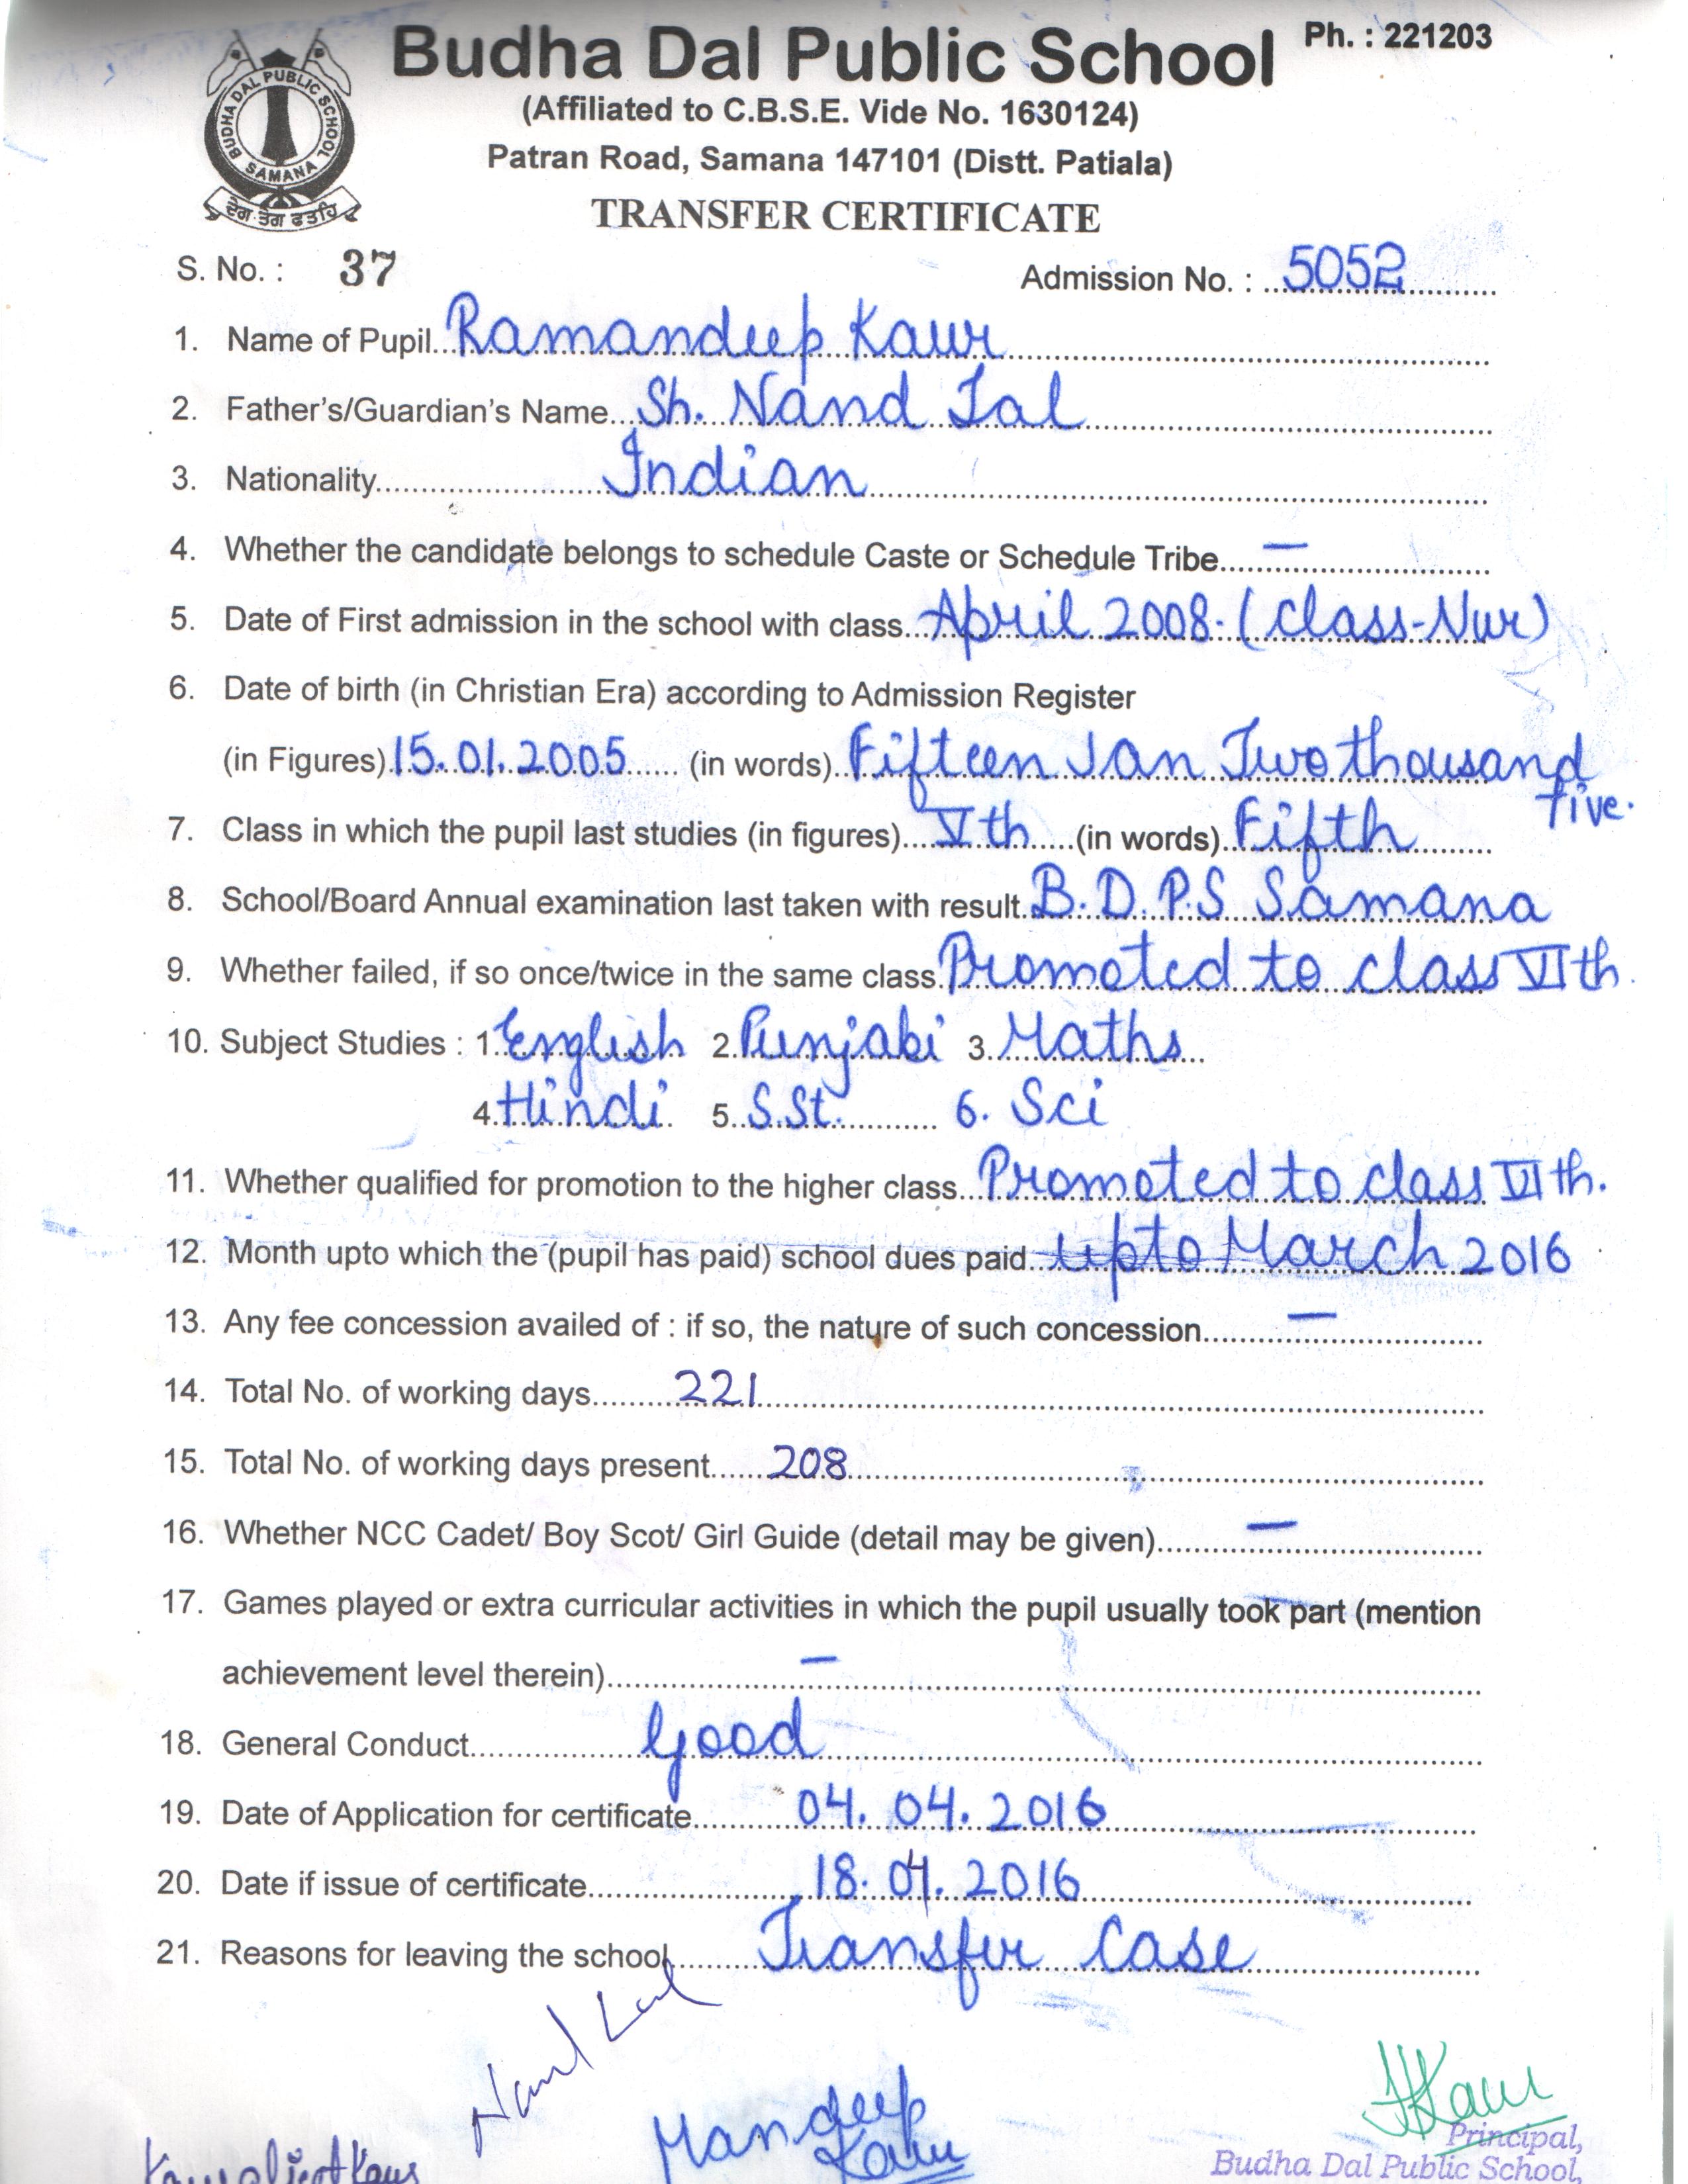 Budha Dal Public School
Ph. : 221203
BUDHA DAL PUBLIC SCHOOL
SAMANA
ਦੇਗ ਤੇਗ ਫਤਹਿ
(Affiliated to C.B.S.E. Vide No. 1630124)
Patran Road, Samana 147101 (Distt. Patiala)
TRANSFER CERTIFICATE
S. No. : 37 Admission No. : 5052
1. Name of Pupil Ramandeep Kaur
2. Father's/Guardian's Name Sh. Nand Lal
3. Nationality Indian
4. Whether the candidate belongs to schedule Caste or Schedule Tribe —
5. Date of First admission in the school with class April 2008. (Class-Nur)
6. Date of birth (in Christian Era) according to Admission Register
(in Figures) 15.01.2005 (in words) Fifteen Jan Two thousand
five.
7. Class in which the pupil last studies (in figures) Vth (in words) Fifth
8. School/Board Annual examination last taken with result B.D.P.S Samana
9. Whether failed, if so once/twice in the same class Promoted to class VIth.
10. Subject Studies : 1. English 2. Punjabi 3. Maths
4. Hindi 5. S.St. 6. Sci
11. Whether qualified for promotion to the higher class Promoted to class VIth.
12. Month upto which the (pupil has paid) school dues paid upto March 2016
13. Any fee concession availed of : if so, the nature of such concession —
14. Total No. of working days 221
15. Total No. of working days present 208
16. Whether NCC Cadet/ Boy Scot/ Girl Guide (detail may be given) —
17. Games played or extra curricular activities in which the pupil usually took part (mention
achievement level therein) —
18. General Conduct Good
19. Date of Application for certificate 04.04.2016
20. Date if issue of certificate 18.04.2016
21. Reasons for leaving the school Transfer Case
Nand Lal
Mandeep
Kaur
Kaur
Principal,
Budha Dal Public School,